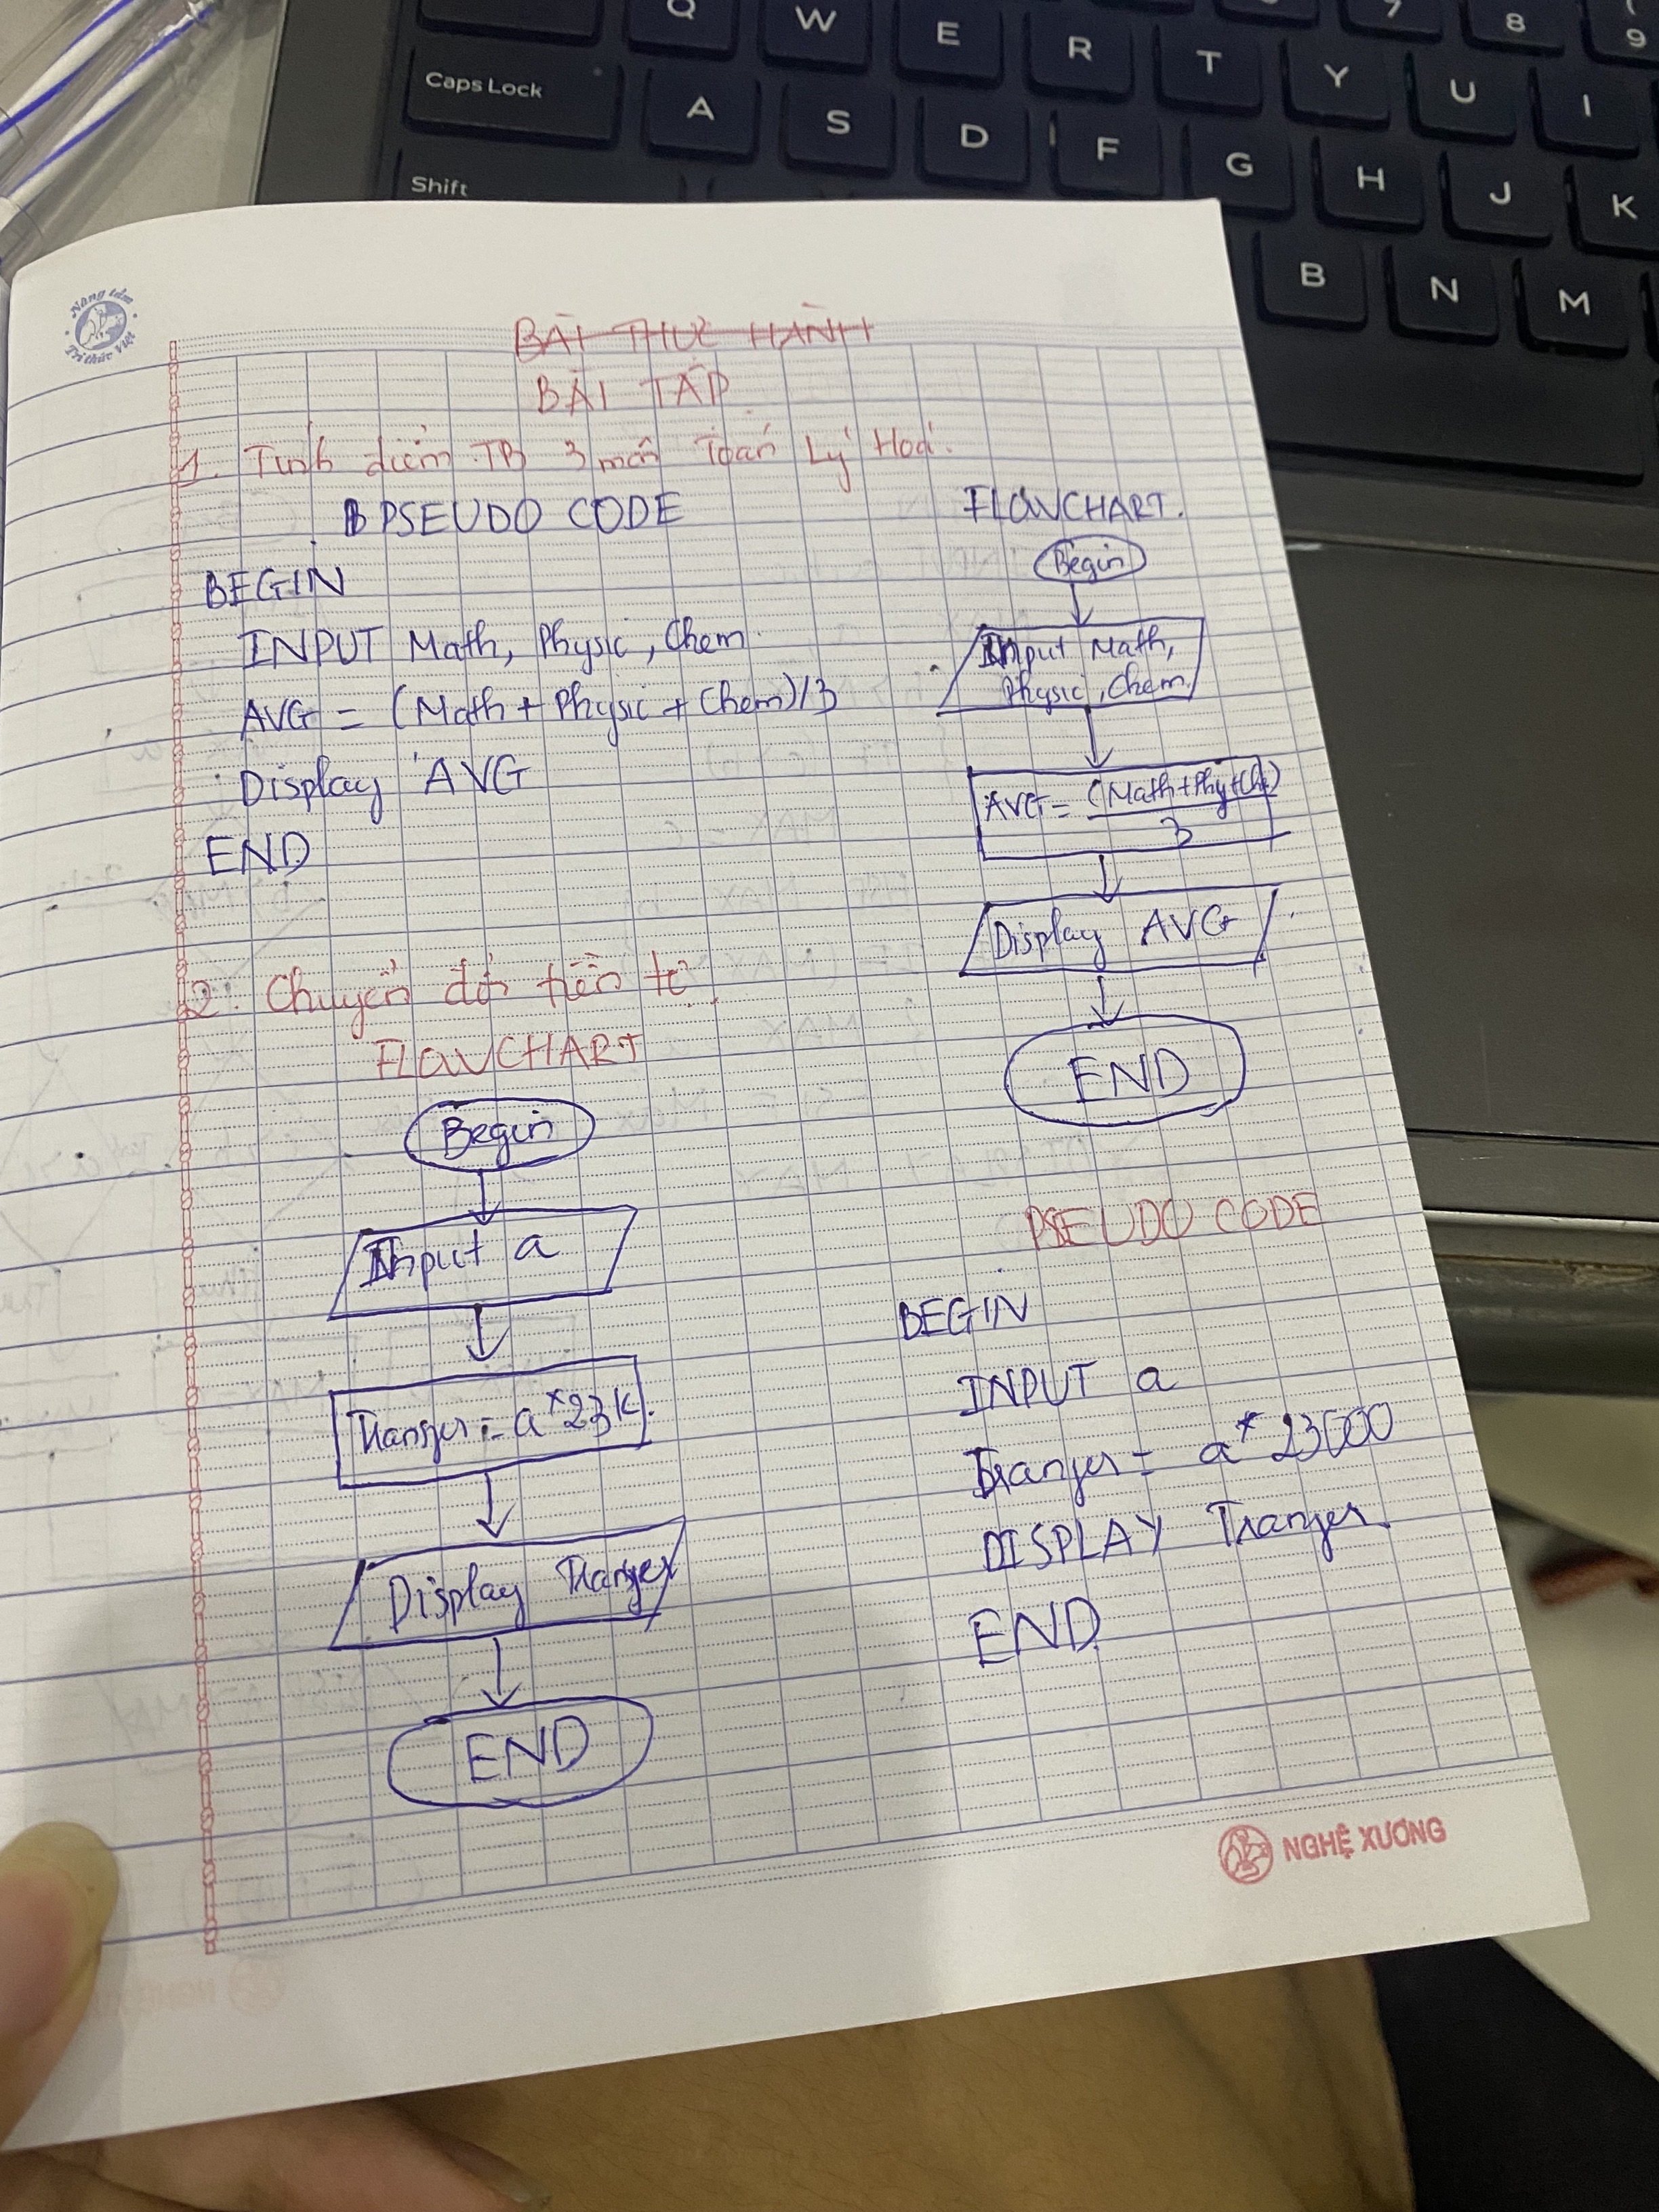 Q W E R T Y U I 7 8 9
Caps Lock A S D F G H J K
Shift B N M
Nâng tầm
Tri thức Việt
BÀI THỰC HÀNH
BÀI TẬP
1. Tính điểm TB 3 môn Toán Lý Hoá.
PSEUDO CODE
BEGIN
INPUT Math, Physic, Chem
AVG = (Math + Physic + Chem)/3
Display AVG
END
FLOWCHART.
Begin
Input Math,
Physic, Chem
AVG = (Math+Phy+Ch)
3
Display AVG
END
2. Chuyển đổi tiền tệ
FLOWCHART
Begin
Input a
= a*23K
Display
END
PSEUDO CODE
BEGIN
INPUT a
= a * 23000
DISPLAY
END
NGHỆ XƯƠNG